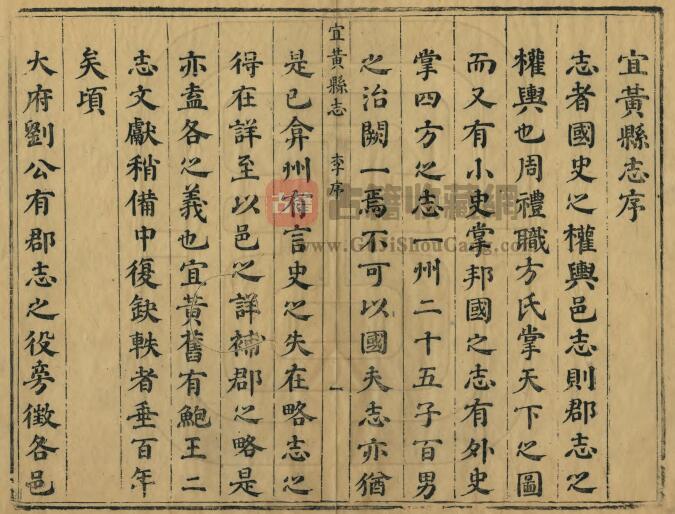 宜黃縣志序
志者國史之權輿邑志則郡志之
權輿也周禮職方氏掌天下之圖
而又有小史掌邦國之志有外史
掌四方之志一州二十五子百男
之治闕一焉不可以國夫志亦猶
宜黃縣志 李序 一
是已弇州有言史之失在略志之
得在詳至以邑之詳補郡之略是
亦盍各之義也宜黃舊有鮑王二
志文獻稍備中復缺軼者垂百年
矣頃
大府劉公有郡志之役旁徵各邑
古籍收藏網
www.GujiShouCang.com